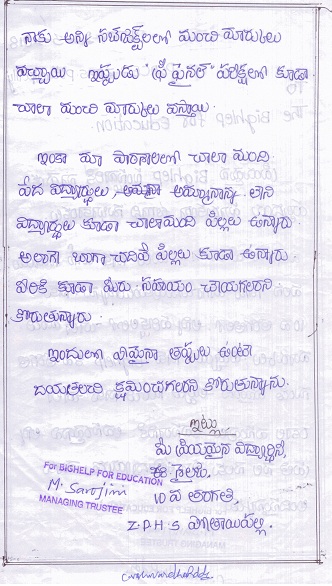 నాకు అన్ని సబ్జెక్ట్‌లలో మంచి మార్కులు
వచ్చాయి ఇప్పుడు "ప్రీ ఫైనల్" పరీక్షలలో కూడా
చాలా మంచి మార్కులు వస్తాయి.
ఇంకా మా పాఠశాలలో చాలా మంది
పేద విద్యార్థులు, అమ్మా నాన్న లేని
విద్యార్థులు కూడా చాలామంది పిల్లలు ఉన్నారు.
అలాగే బాగా చదివే పిల్లలు కూడా ఉన్నారు.
వారికి కూడా మీరు సహాయం చేయగలరని
కోరుతున్నారు.
ఇందులో ఏమైనా తప్పులు ఉంటే
దయతలచి క్షమించగలరని కోరుతున్నాను.
ఇట్లు
మీ ప్రియమైన విద్యార్థిని,
శైలజ,
10 వ తరగతి,
Z.P.H.S పోతాయిపల్లి.
For BIGHELP FOR EDUCATION
M. Sarojini
MANAGING TRUSTEE